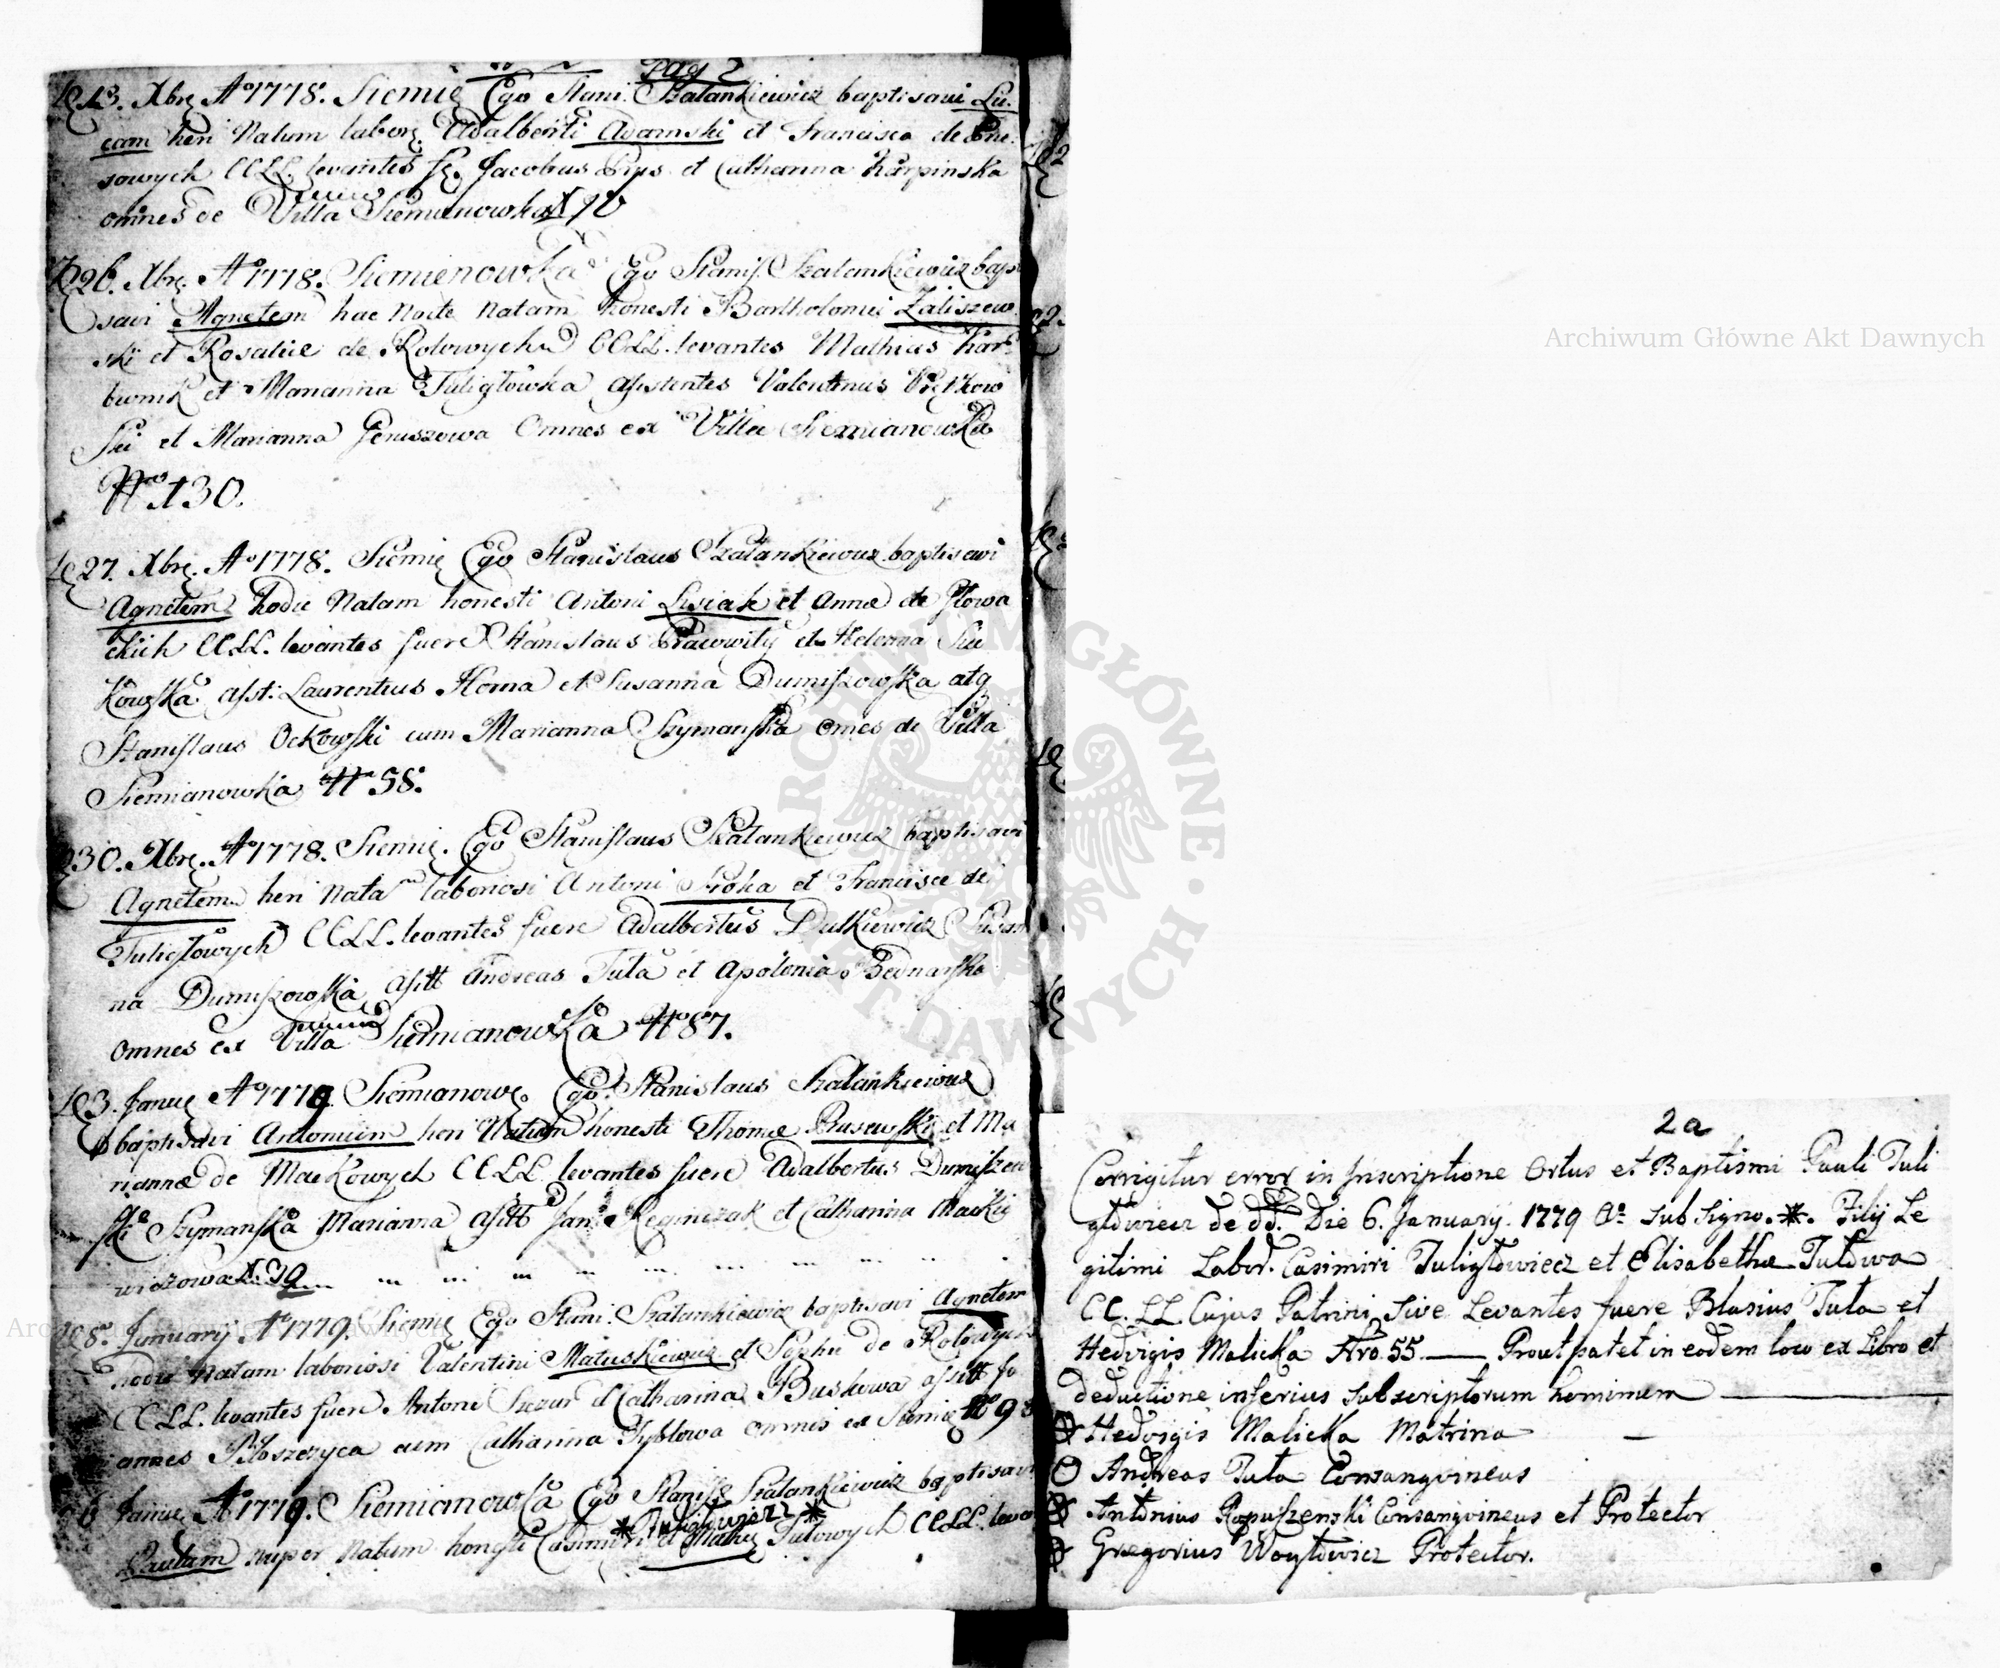 pag 2
13. Xbrę A° 1778. Siemię Ego Stani. Szatankiewicz baptisavi Lu-
cam heri Natum labor. Adalberti Adamski et Francisca de
sowych CCLL. levantes Jacobus Prys et Catharina Karpinska
omnes de Villa Siemianowka
26. Xbrę. A° 1778. Siemienowka Ego Stanis. Szatankiewicz bap
savi Agnetem hac Nocte Natam honesti Bartholomei Zaliszew
ski et Rosaliæ de Rolowych CCLL. levantes Mathias Kar
bwnik et Marianna Tuligłowka assistentes Valentinus
ski et Marianna Geruszowa Omnes ex Villa Siemianowka
N° 130.
27. Xbrę. A° 1778. Siemię Ego Stanislaus Szatankiewicz baptisavi
Agnetem hodie Natam honesti Antoni Lisiak et Annæ de Głowa
ckich CCLL. levantes fuere Stanislaus Pracowity et Helena Sie
kowska asst: Laurentius Homa et Susanna Dumiszowska atq
Stanislaus Ockowski cum Marianna Szymanska omes de Villa
Siemianowka N° 58.
30. Xbrę. A° 1778. Siemię. Ego Stanislaus Szatankiewicz baptisavi
Agnetem heri Natam laboriosi Antoni Sroka et Francisce de
Tuligłowych CCLL. levantes fuere Adalbertus Dutkiewicz Susan
na Dumiszowska, assitt Andreas Tuta et Apolonia Bednarska
omnes ex Villa Siemianowka N° 87.
3. Januę A° 1779. Siemianowę. Ego Stanislaus Szatankiewicz
baptisavi Antonium heri Natum honesti Thomæ Rusewski et Ma
riannæ de Mackowych CCLL levantes fuere Adalbertus Dumiszew
ski Szymanska Marianna assitt Jan. Reginczak et Catharina Mackie
wiczowa N. 39
8. Januarij A° 1779. Siemię Ego Stani. Szatankiewicz baptisavi Agnetem
hodie Natam laboriosi Valentini Matuskiewicz et Sophie de Rolowych
CCLL. levantes fuere Antoni Mazur et Catharina Buskowa assitt Jo
annes Płoszczyca cum Catharina Dyblowa omnes ex Siemię N° 98
6 Januę A° 1779. Siemianowka Ego Stanisl Szatankiewicz baptisavi
* Tuligłowicz *
Paulum nuper Natum honesti Casimiri et Tutowych CCLL. leva
2a
Corrigitur error in Inscriptione Ortus et Baptismi Pauli Tuli
głowicz de dd. Die 6. January. 1779 A° sub signo. *. Filij Le
gitimi Labor. Casimiri Tuligłowicz et Elisabethæ Tutowa
CC. LL Cujus Patrini, sive Levantes fuere Blasius Tuta et
Hedvigis Malicka Nro 55 — Prout patet in eodem loco ex Libro et
deductione inferius subscriptorum hominum —
Hedvigis Malicka Matrina —
Andreas Tuta Consangvineus
Antonius Ropuszenski Consangvineus et Protector
Gregorius Woytowicz Protector.
Archiwum Główne Akt Dawnych
ARCHIWUM GŁÓWNE AKT DAWNYCH